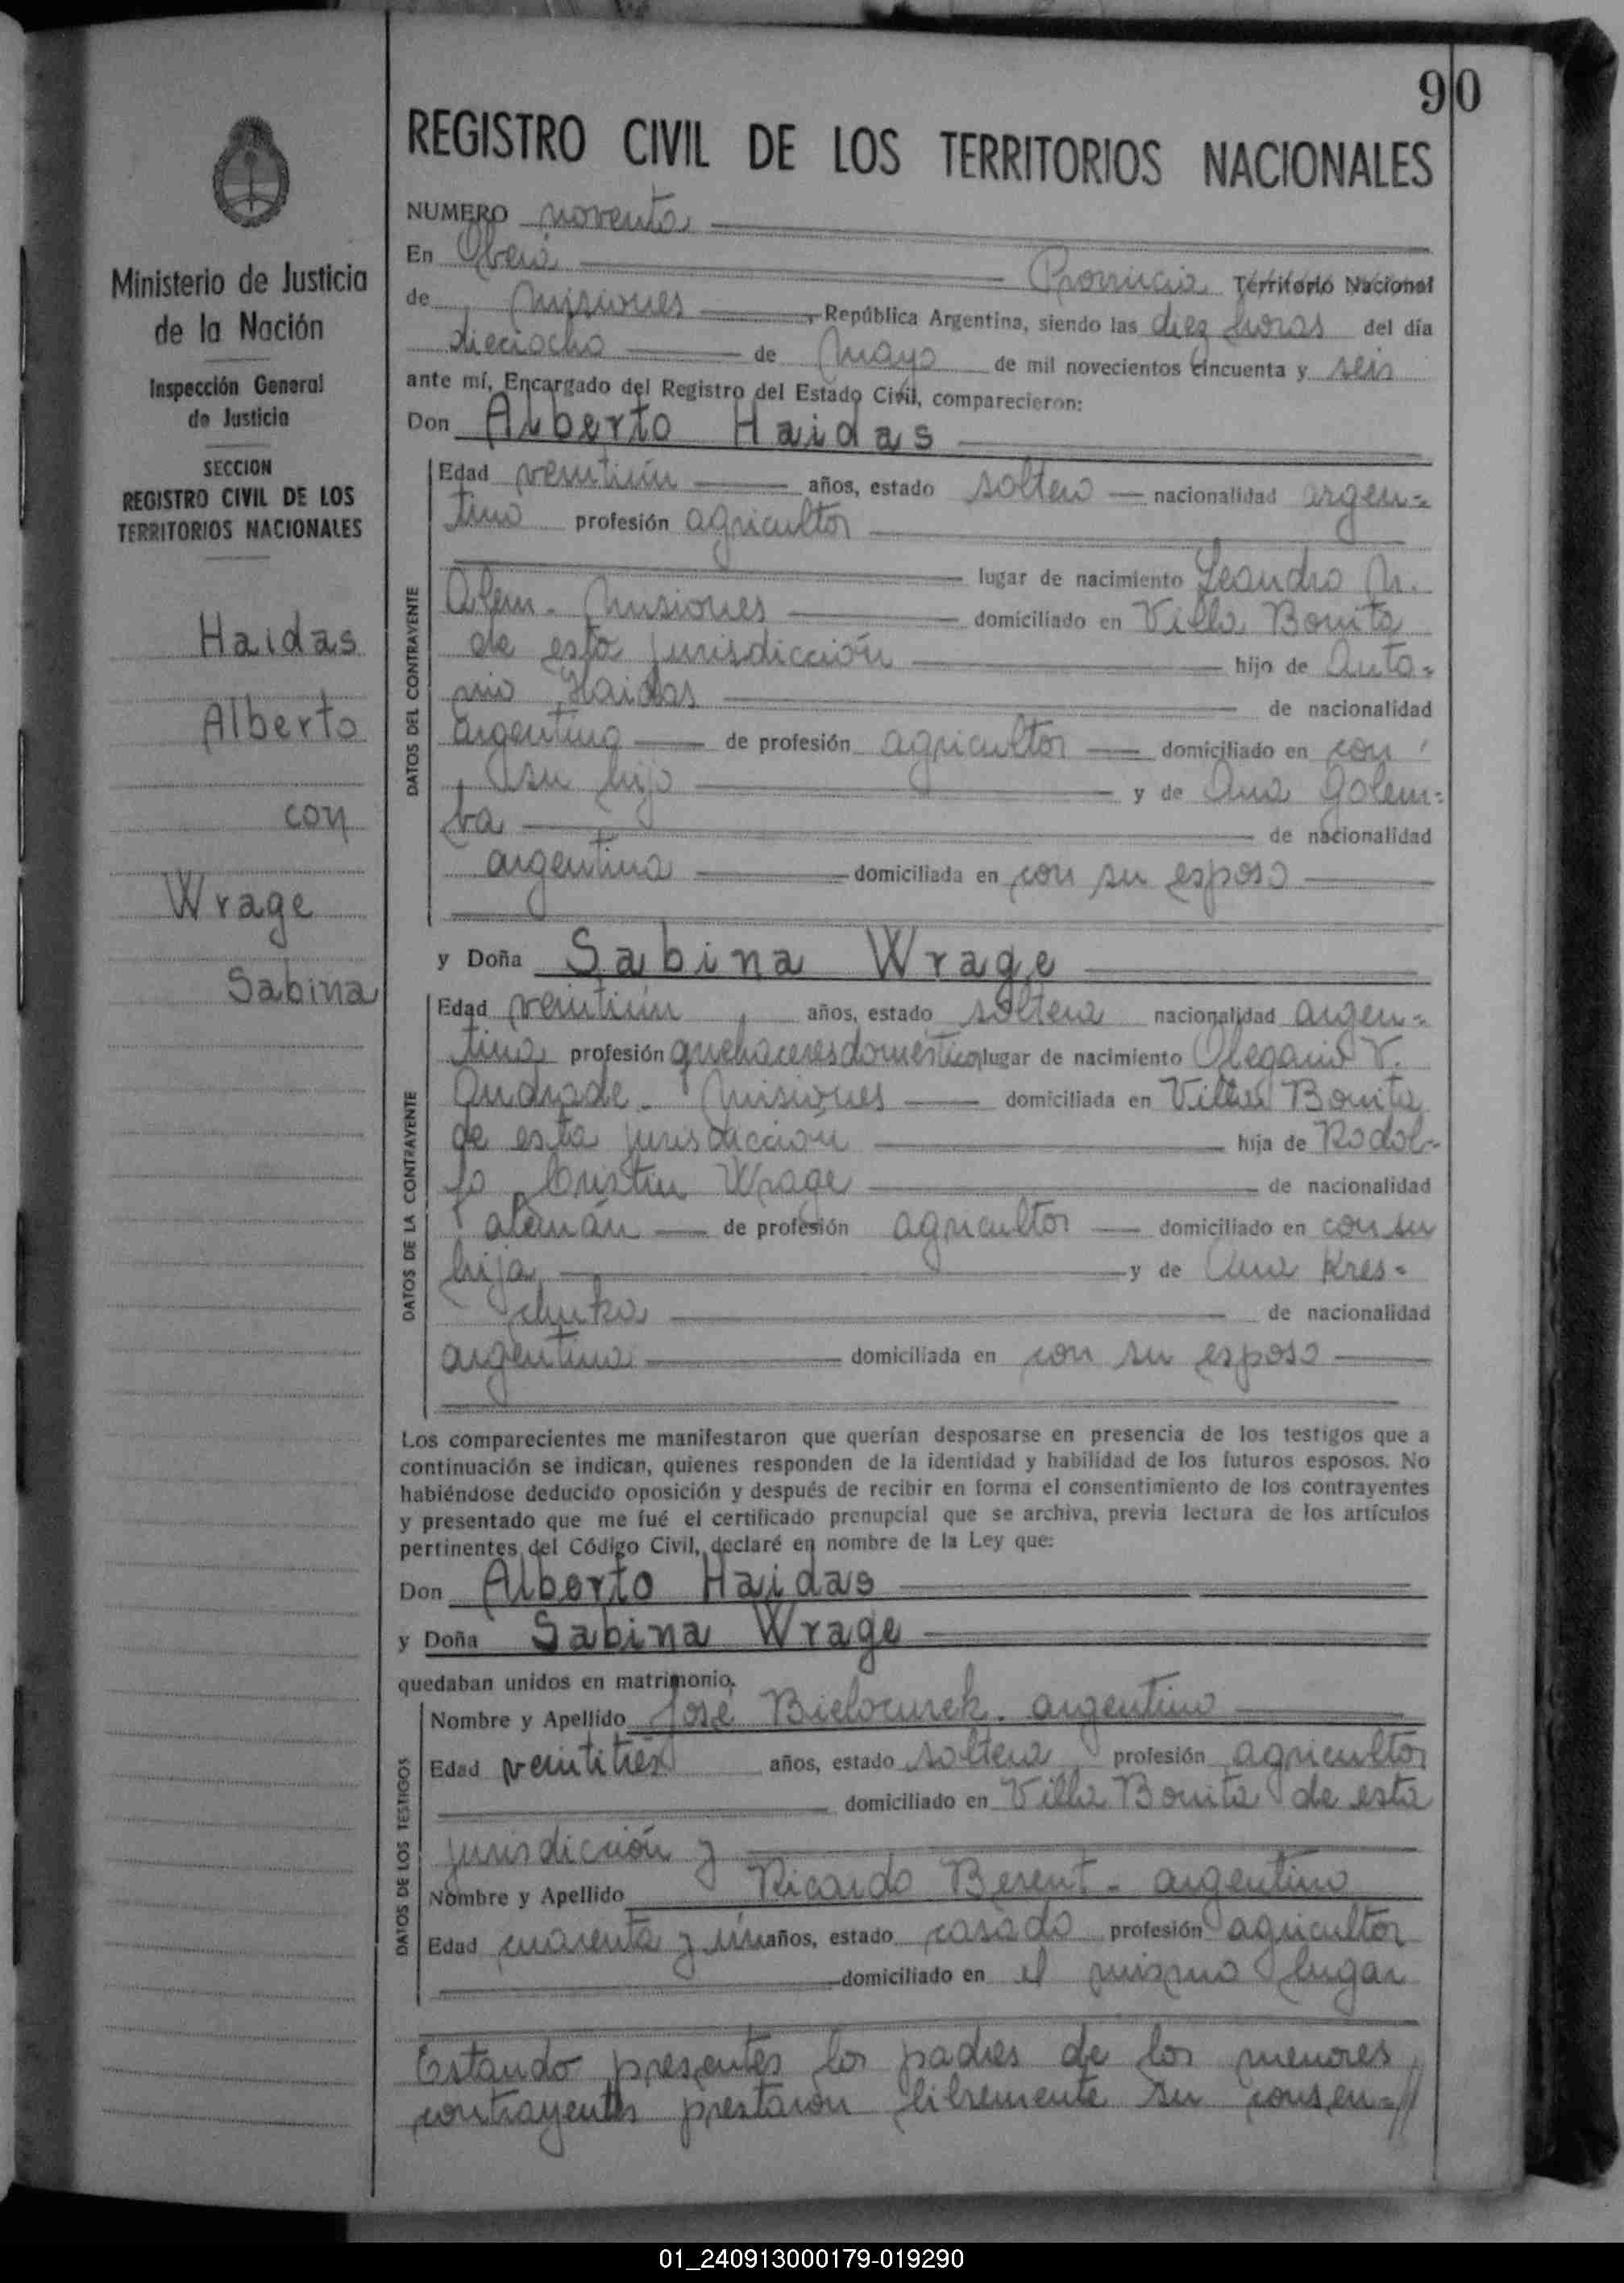 90
REGISTRO CIVIL DE LOS TERRITORIOS NACIONALES
Ministerio de Justicia
de la Nación
Inspección General
de Justicia
SECCION
REGISTRO CIVIL DE LOS
TERRITORIOS NACIONALES
Haidas
Alberto
con
Wrage
Sabina
NUMERO noventa
En Oberá Provincia Territorio Nacional
de Misiones República Argentina, siendo las diez horas del día
dieciocho de Mayo de mil novecientos cincuenta y seis
ante mí, Encargado del Registro del Estado Civil, comparecieron:
Don Alberto Haidas
DATOS DEL CONTRAYENTE
Edad veintiún años, estado soltero nacionalidad argen-
tino profesión agricultor
lugar de nacimiento Leandro N.
Alem - Misiones domiciliado en Villa Bonita
de esta jurisdicción hijo de Anto-
nio Haidas de nacionalidad
argentina de profesión agricultor domiciliado en con
su hijo y de Ana Golem-
ba de nacionalidad
argentina domiciliada en con su esposo
y Doña Sabina Wrage
DATOS DE LA CONTRAYENTE
Edad veintiún años, estado soltera nacionalidad argen-
tina profesión quehaceres domésticos lugar de nacimiento Olegario V.
Andrade - Misiones domiciliada en Villa Bonita
de esta jurisdicción hija de Rodol-
fo Cristin Wrage de nacionalidad
alemán de profesión agricultor domiciliado en con su
hija y de Ana Kres-
chuka de nacionalidad
argentina domiciliada en con su esposo
Los comparecientes me manifestaron que querían desposarse en presencia de los testigos que a
continuación se indican, quienes responden de la identidad y habilidad de los futuros esposos. No
habiéndose deducido oposición y después de recibir en forma el consentimiento de los contrayentes
y presentado que me fué el certificado prenupcial que se archiva, previa lectura de los artículos
pertinentes del Código Civil, declaré en nombre de la Ley que:
Don Alberto Haidas
y Doña Sabina Wrage
quedaban unidos en matrimonio.
DATOS DE LOS TESTIGOS
Nombre y Apellido José Bielocurek. argentino
Edad veintitrés años, estado soltero profesión agricultor
domiciliado en Villa Bonita de esta
jurisdicción y
Nombre y Apellido Ricardo Berent - argentino
Edad cuarenta y un años, estado casado profesión agricultor
domiciliado en el mismo lugar
Estando presentes los padres de los menores
contrayentes prestaron libremente su consen-//
01_240913000179-019290